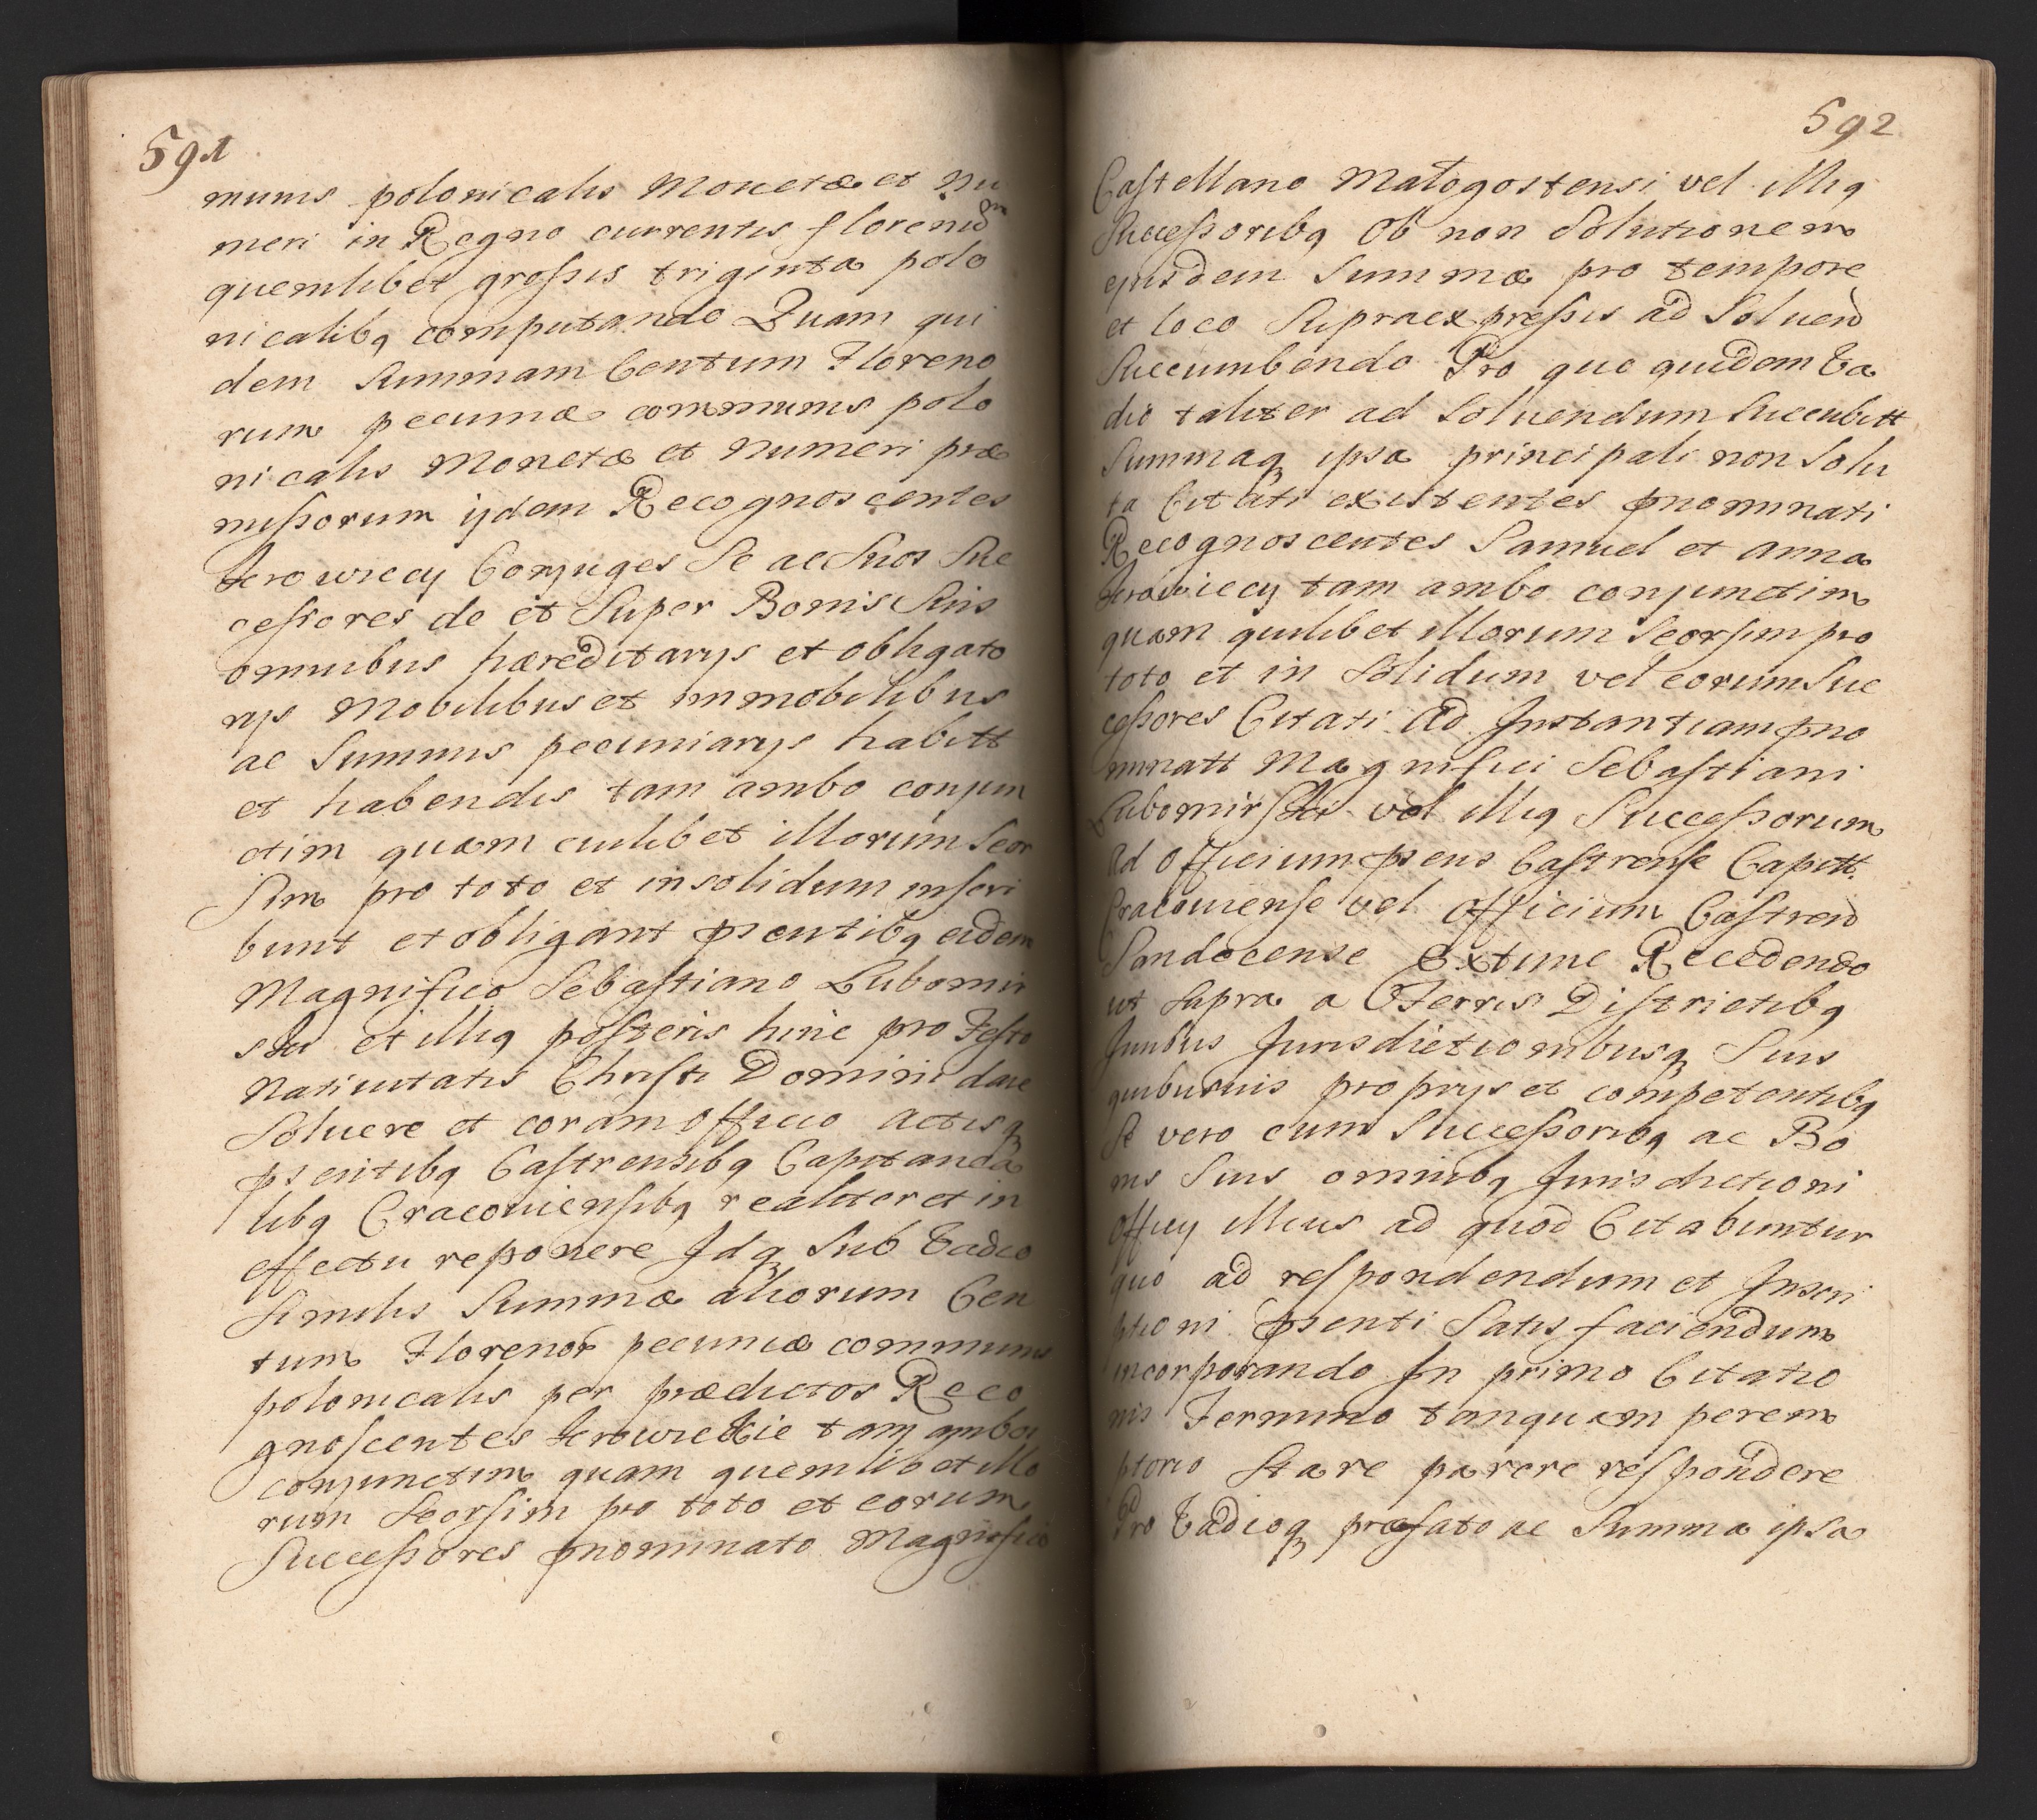 591
munis polonicalis Monetæ et Nu
meri in Regno currentis florenū
quemlibet grossis triginta polo
nicalibq computando Quam qui
dem Summam Centum Floreno
rum pecuniæ communis polo
nicalis Monetæ et Numeri præ
missorum ijdem Recognoscentes
Conjuges Se ac Suos Suc
cessores de et Super Bonis Suis
omnibus hæreditarys et obligato
rys Mobilibus et immobilibus
ac Summis pecuniarys habitt
et habendis tam ambo conjun
ctim quam cuilibet illorum Seor
Sim pro toto et insolidum inscri
bunt et obligant pсentibq eidem
Magnifico Sebastiano Lubomir
ski et illiq posteris hinc pro Festo
Nativitatis Christi Domini dare
Solvere et coram officio Actisq
psentibq Castrensibq Capitanea
libq Cracoviensibq realiter et in
effectu reponere Idq Sub Vadio
Similis Summæ aliorum Cen
tum Florenor pecuniæ communis
polonicalis per prædictos Reco
gnoscentes tam ambos
conjunctim quam quemlibet illo
rum Seorsim pro toto et eorum
Successores pnominato Magnifico
592
Castellano Małogostensi vel illiq
Successoribq Ob non Solutionem
ejusdem Summæ pro tempore
et loco Supraexpressis ad Solvend
Succumbendo Pro quo quidem Va
dio taliter ad Solvendum Succubitt
Summaq ipsa principali non Solu
ta Citati existentes pnominati
Recognoscentes Samuel et Anna
tam ambo conjunctim
quam quilibet illorum Seorsim pro
toto et in Solidum vel eorum Suc
cessores Citati ad Instantiam pno
minatt Magnifici Sebastiani
Lubomirski vel illiq Successorum
Ad Officium psens Castrense Capitt.
Cracoviense vel Officium Castren
Sandecense Extunc Recedendo
ut Supra a Terris Districtibq
Juribus Jurisdictionibusq Suis
quibusvis proprys et competentibq
Se vero cum Successoribq ac Bo
nis Suis omnibq Jurisdictioni
Officy illius ad quod Citabuntur
quo ad respondendum et Inscri
ptioni psenti Satisfaciendum
incorporando In primo Citatio
nis Termino tanquam perem
ptorio Stare parere respondere
Pro Vadioq præfato ac Summa ipsa